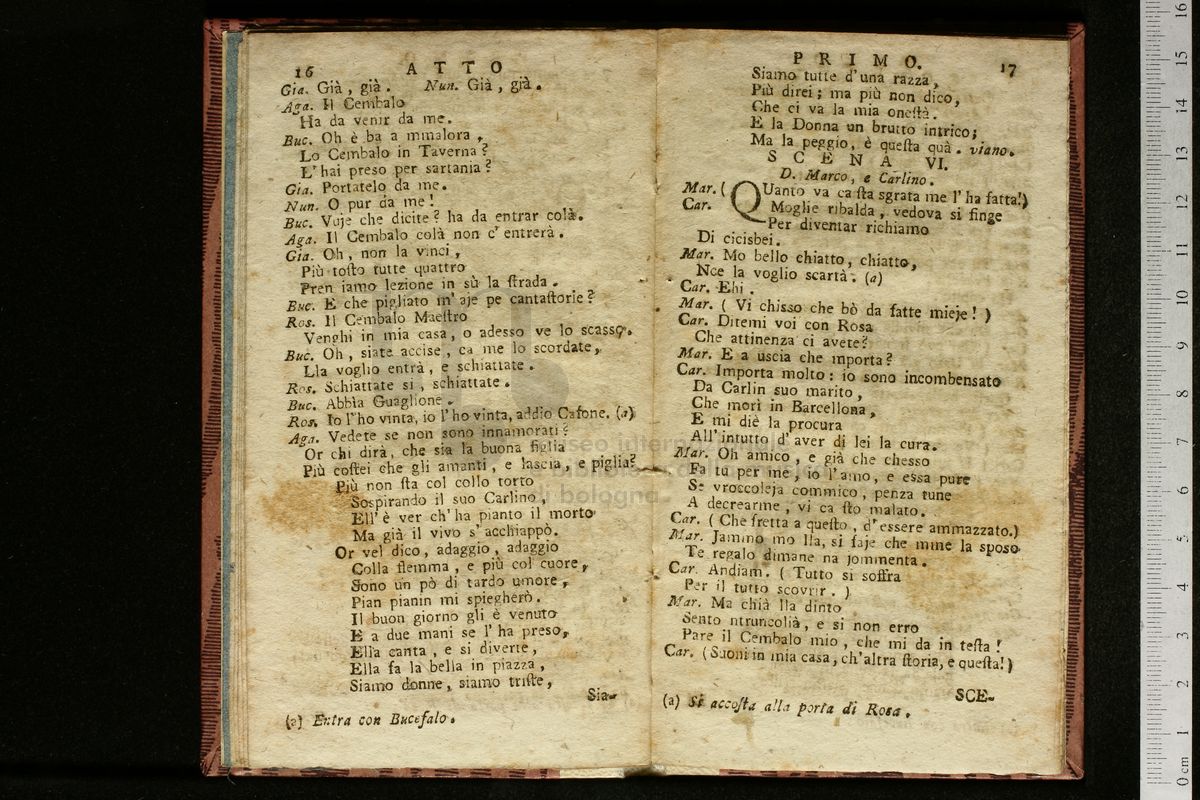 16 ATTO
Gia. Già, già. Nun. Già, già.
Aga. Il Cembalo
Ha da venir da me.
Buc. Oh è ba a mmalora,
Lo Cembalo in Taverna?
L'hai preso per sartania?
Gia. Portatelo da me.
Nun. O pur da me!
Buc. Vuje che dicite? ha da entrar colà.
Aga. Il Cembalo colà non c'entrerà.
Gia. Oh, non la vinci,
Più tosto tutte quattro
Pren iamo lezione in sù la strada.
Buc. E che pigliato m'aje pe cantastorie?
Ros. Il Cembalo Maestro
Venghi in mia casa, o adesso ve lo scasso.
Buc. Oh, siate accise, ca me lo scordate,
Lla voglio entrà, e schiattate.
Ros. Schiattate si, schiattate.
Buc. Abbia Guaglione.
Ros. Io l'ho vinta, io l'ho vinta, addio Cafone. (a)
Aga. Vedete se non sono innamorati?
Or chi dirà, che sia la buona figlia
Più costei che gli amanti, e lascia, e piglia?
Più non sta col collo torto
Sospirando il suo Carlino,
Ell'è ver ch'ha pianto il morto
Ma già il vivo s'acchiappò.
Or vel dico, adaggio, adaggio
Colla flemma, e più col cuore,
Sono un pò di tardo umore,
Pian pianin mi spiegherò.
Il buon giorno gli è venuto
E a due mani se l'ha preso,
Ella canta, e si diverte,
Ella fa la bella in piazza,
Siamo donne, siamo triste,
Sia-
(a) Entra con Bucefalo.
PRIMO. 17
Siamo tutte d'una razza,
Più direi; ma più non dico,
Che ci va la mia onestà.
E la Donna un brutto intrico;
Ma la peggio, è questa quà. viano.
SCENA VI.
D. Marco, e Carlino.
Mar. (QUanto va ca sta sgrata me l'ha fatta!)
Car. Moglie ribalda, vedova si finge
Per diventar richiamo
Di cicisbei.
Mar. Mo bello chiatto, chiatto,
Nce la voglio scartà. (a)
Car. Ehi.
Mar. (Vi chisso che bò da fatte mieje!)
Car. Ditemi voi con Rosa
Che attinenza ci avete?
Mar. E a uscia che mporta?
Car. Importa molto: io sono incombensato
Da Carlin suo marito,
Che morì in Barcellona,
E mi diè la procura
All'intutto d'aver di lei la cura.
Mar. Oh amico, e già che chesso
Fa tu per me, io l'amo, e essa pure
Se vroccoleja commico, penza tune
A decrearme, vi ca sto malato.
Car. (Che fretta a questo, d'essere ammazzato.)
Mar. Jammo mo lla, si faje che mme la sposo
Te regalo dimane na jommenta.
Car. Andiam. (Tutto si soffra
Per il tutto scovrir.)
Mar. Ma chià lla dinto
Sento ntruncolià, e si non erro
Pare il Cembalo mio, che mi da in testa!
Car. (Suoni in mia casa, ch'altra storia, e questa!)
SCE-
(a) Si accosta alla porta di Rosa.